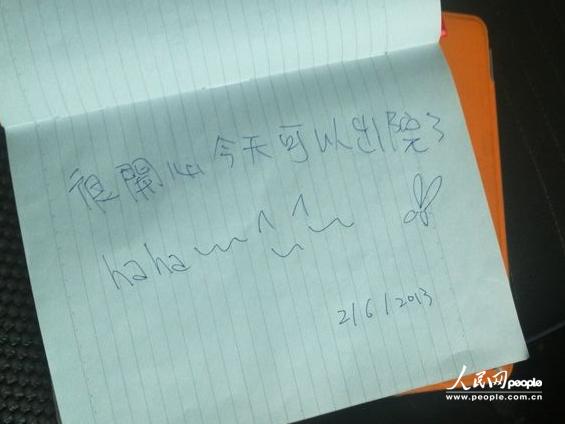 很開心今天可以出院了
haha
21/6/2013
人民网people
www.people.com.cn